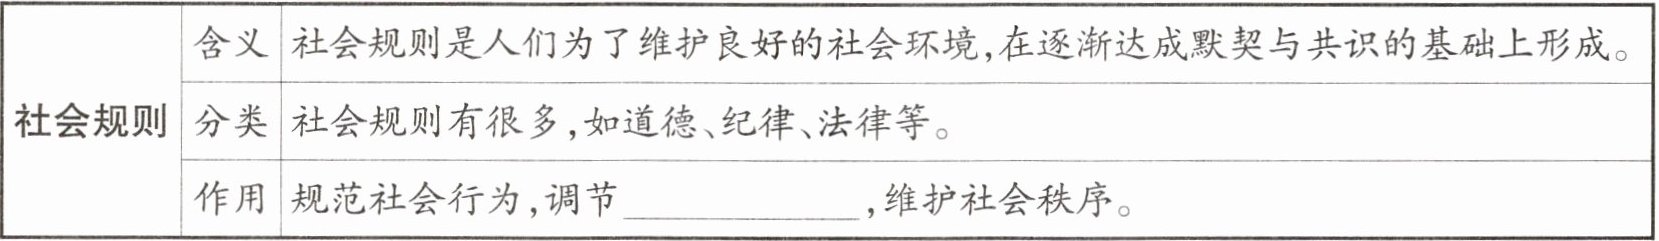 社会规则
含义 社会规则是人们为了维护良好的社会环境,在逐渐达成默契与共识的基础上形成。
分类 社会规则有很多,如道德、纪律、法律等。
作用 规范社会行为,调节____________,维护社会秩序。